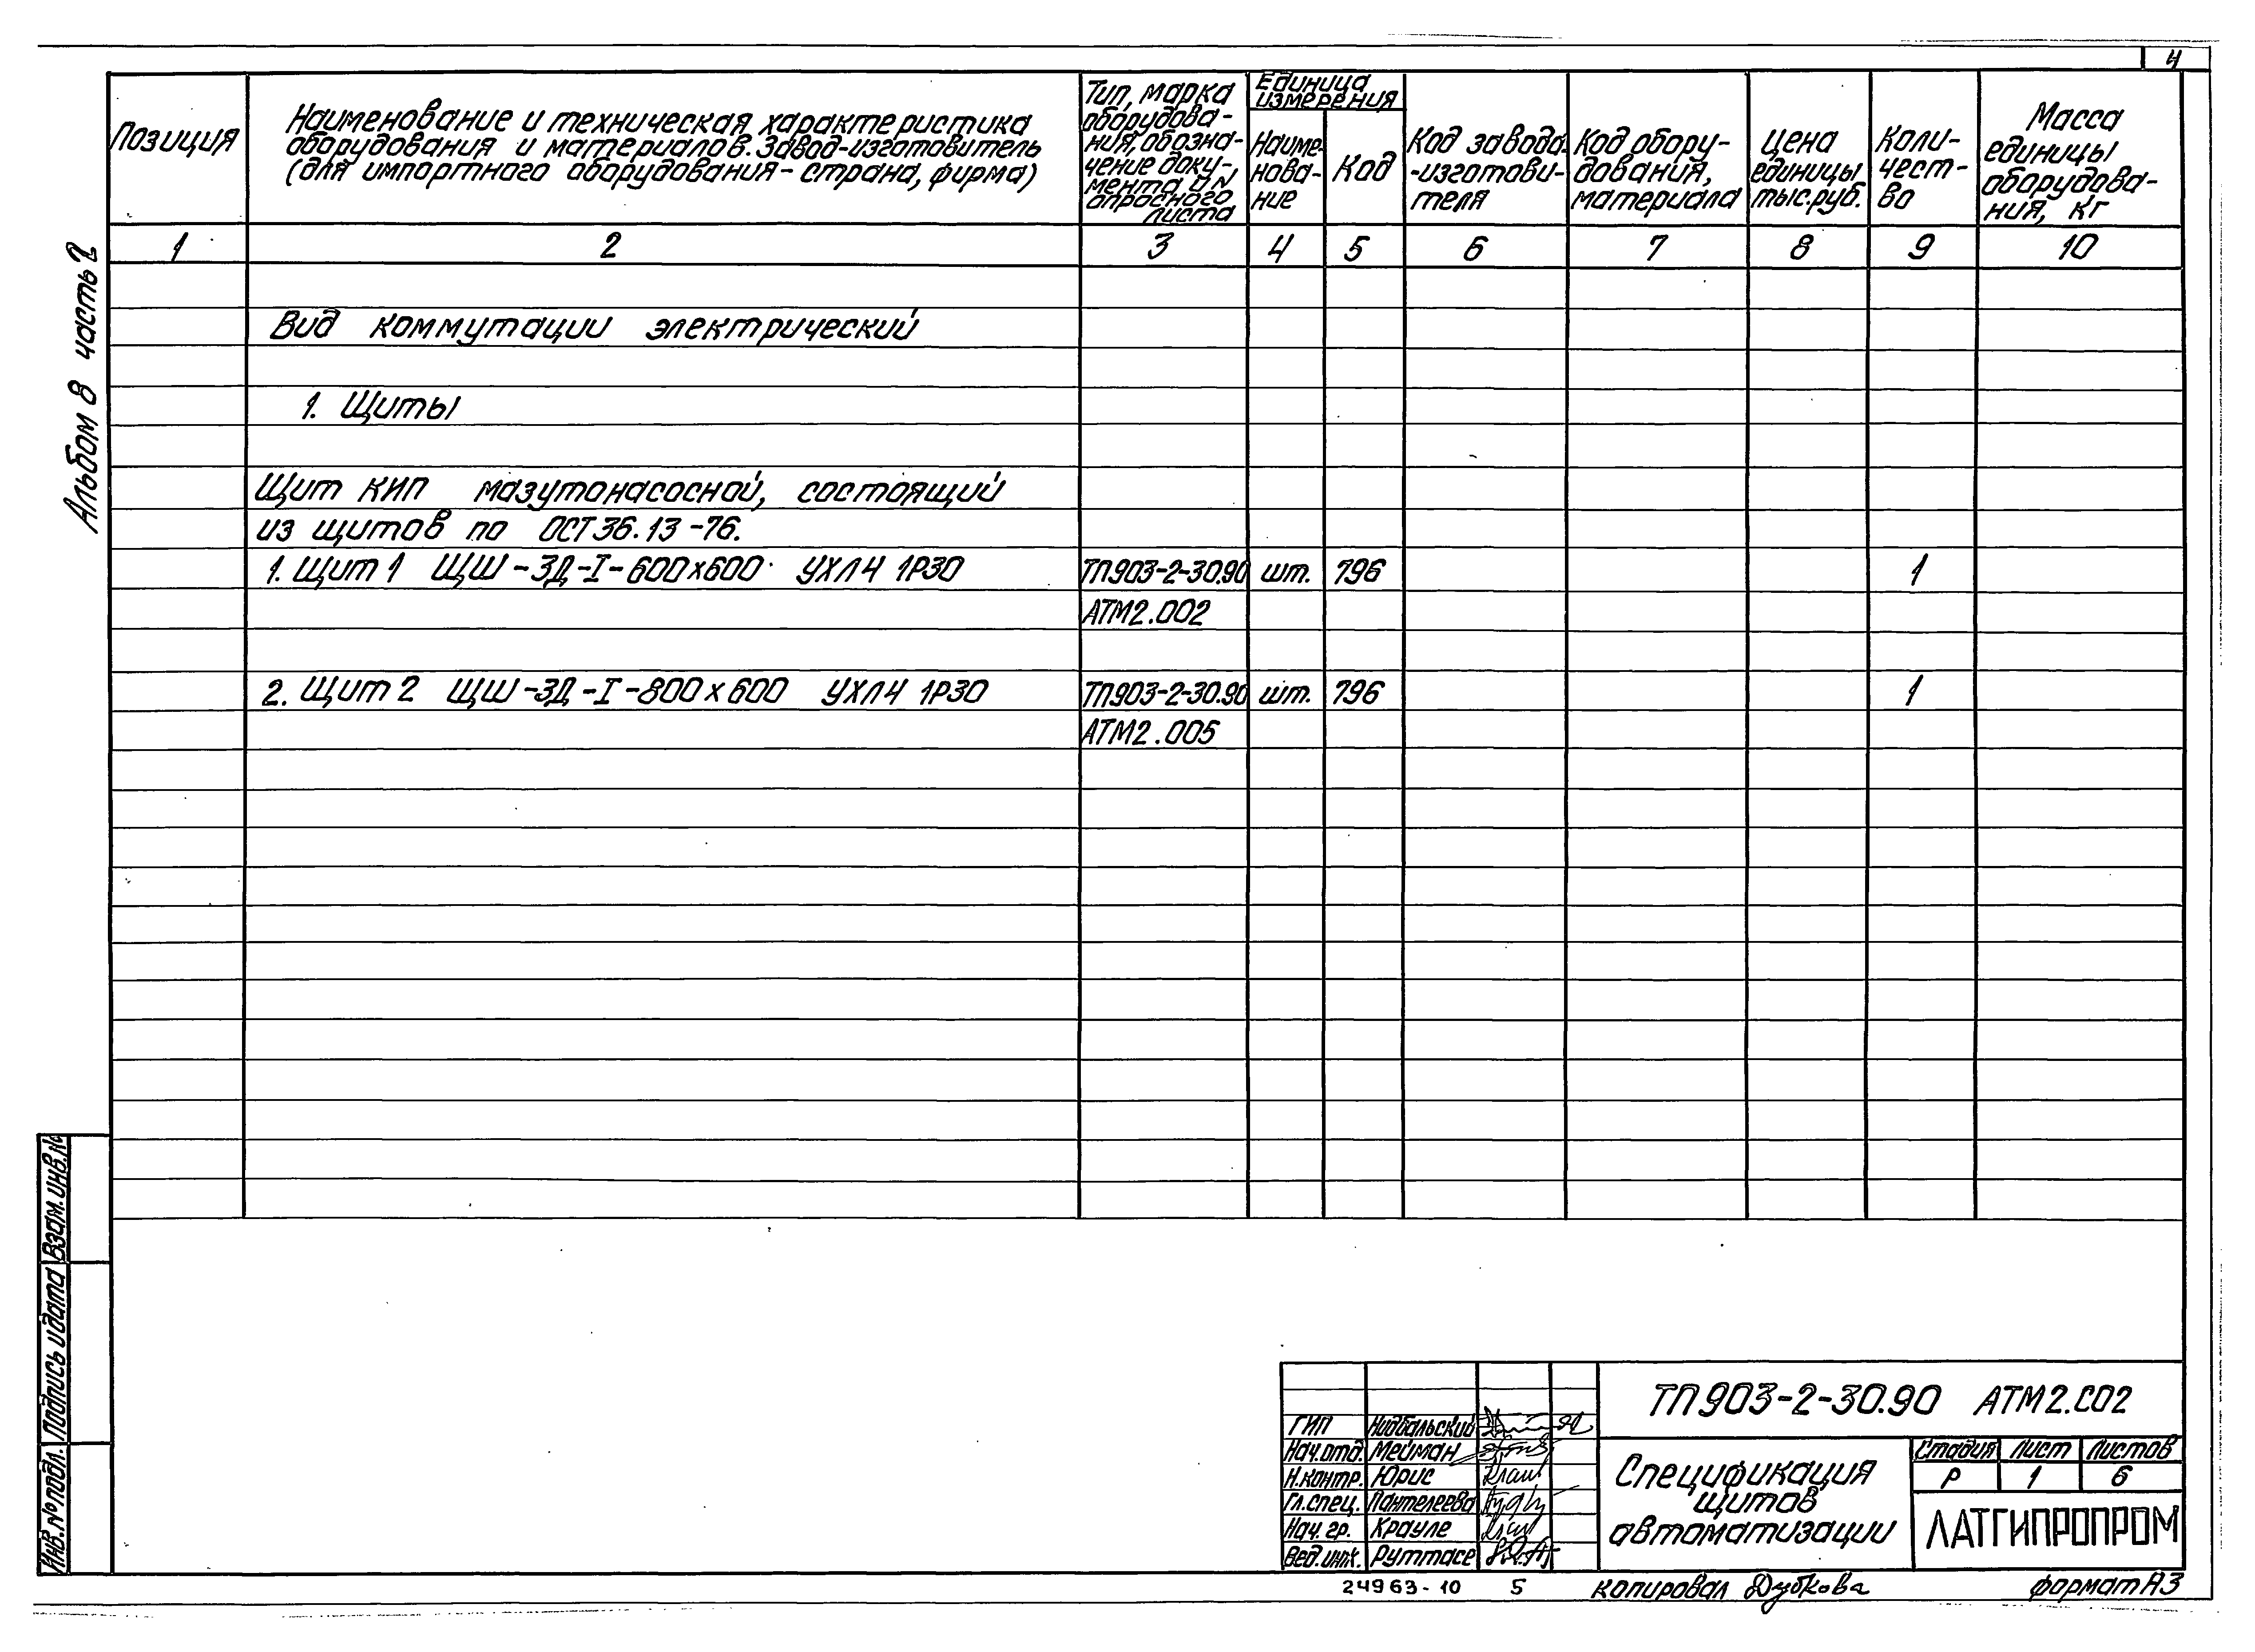 4
Позиция
Наименование и техническая характеристика
оборудования и материалов. Завод-изготовитель
(для импортного оборудования - страна, фирма)
Тип, марка
оборудова-
ния, обозна-
чение доку-
мента и N
опросного
листа
Единица
измерения
Наиме-
нова-
ние
Код
Код завода-
-изготови-
теля
Код обору-
дования,
материала
Цена
единицы
тыс.руб.
Коли-
чест-
во
Масса
единицы
оборудова-
ния, кг
1 2 3 4 5 6 7 8 9 10
Вид коммутации электрический
1. Щиты
Щит КИП мазутонасосной, состоящий
из щитов по ОСТ 36.13-76.
1. Щит 1 ЩШ-ЗД-I-600х600 УХЛ4 1Р30 ТП903-2-30.90 шт. 796 1
АТМ2.002
2. Щит 2 ЩШ-ЗД-I-800х600 УХЛ4 1Р30 ТП903-2-30.90 шт. 796 1
АТМ2.005
Альбом 8 часть 2
Взам. инв.№
Подпись и дата
Инв.№ подл.
ТП903-2-30.90 АТМ2.СО2
ГИП Нидбальский
Нач.отд. Мейман
Н.контр. Юрис
Гл.спец. Пантелеева
Нач. гр. Крауле
Вед.инж. Руттасе
Спецификация
щитов
автоматизации
Стадия Лист Листов
Р 1 6
ЛАТГИПРОПРОМ
24963-10 5 копировал Дубкова формат А3